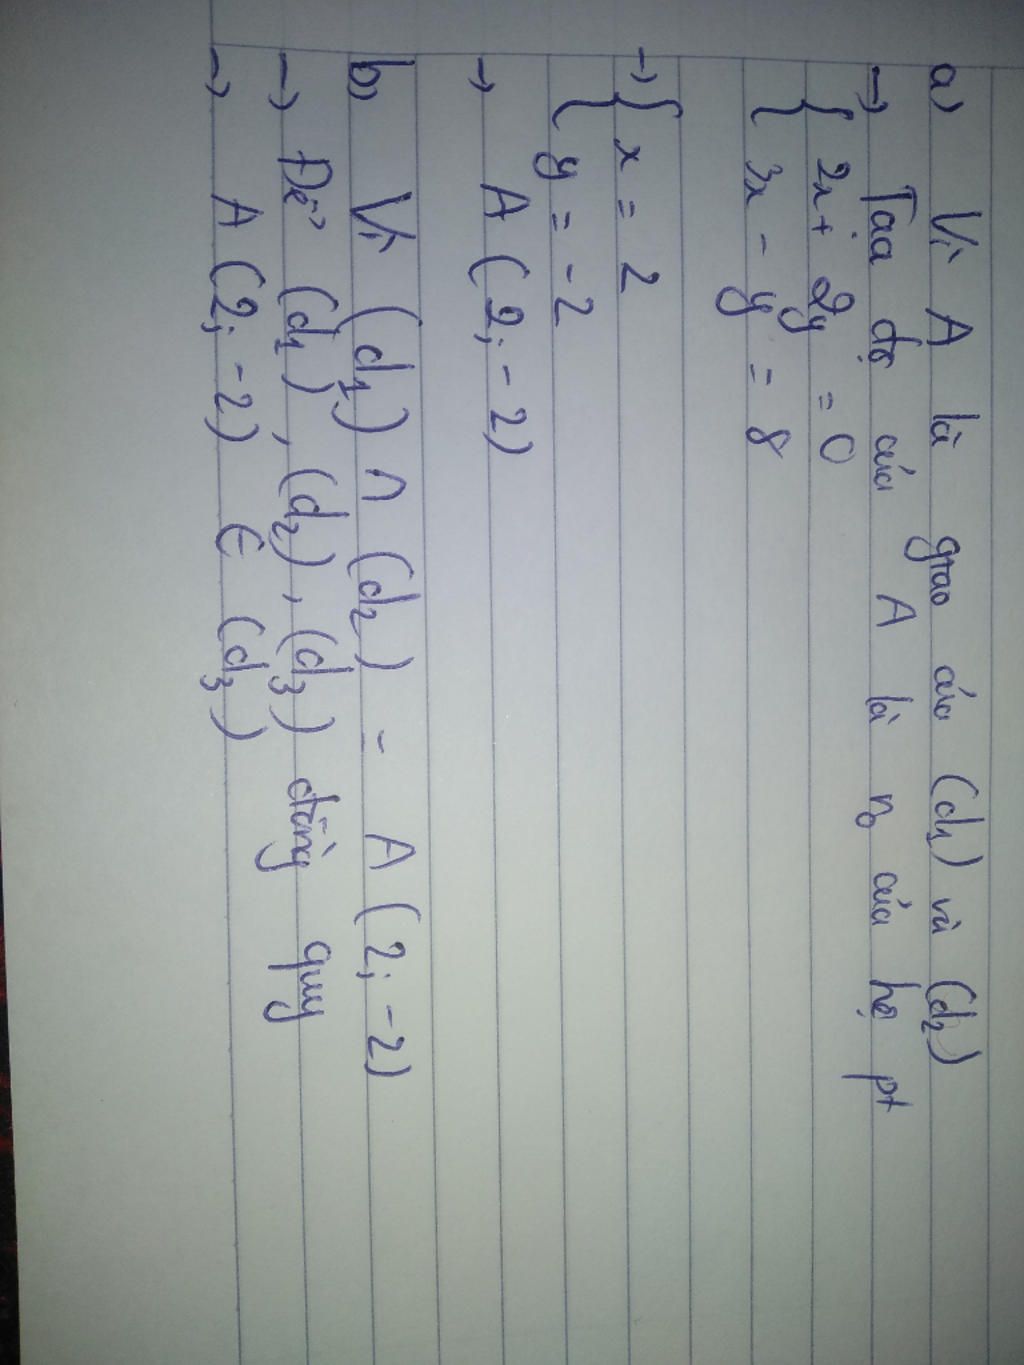 a) Vì A là giao của (d1) và (d2)
→ Tọa độ của A là n0 của hệ pt
{ 2x + 2y = 0
{ 3x - y = 8
→ { x = 2
{ y = -2
→ A (2; -2)
b) Vì (d1) ∩ (d2) = A (2; -2)
→ Để (d1), (d2), (d3) đồng quy
→ A (2; -2) ∈ (d3)